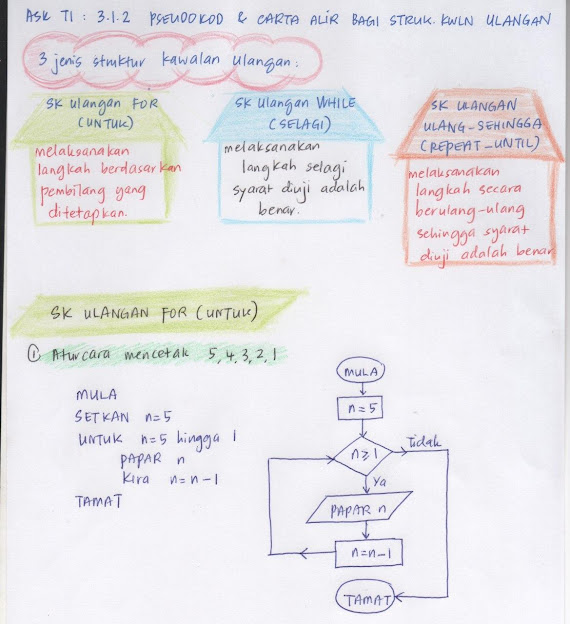 ASK T1 : 3.1.2 PSEUDOKOD & CARTA ALIR BAGI STRUK. KWLN ULANGAN
3 jenis struktur kawalan ulangan :
SK ulangan FOR
(UNTUK)
melaksanakan
langkah berdasarkan
pembilang yang
ditetapkan.
SK ulangan WHILE
(SELAGI)
melaksanakan
langkah selagi
syarat diuji adalah
benar.
SK ULANGAN
ULANG-SEHINGGA
(REPEAT-UNTIL)
melaksanakan
langkah secara
berulang-ulang
sehingga syarat
diuji adalah benar
SK ULANGAN FOR (UNTUK)
① Aturcara mencetak 5,4,3,2,1
MULA
SETKAN n=5
UNTUK n=5 hingga 1
PAPAR n
Kira n=n-1
TAMAT
MULA
n=5
n≥1
tidak
Ya
PAPAR n
n=n-1
TAMAT